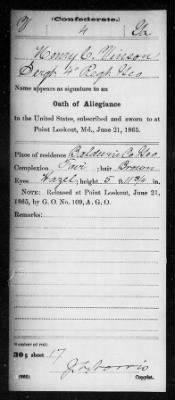 (Confederate.)
V 4 Ga
Henry C. Vinson
Sergt 4" Regt Geo
Name appears as signature to an
Oath of Allegiance
to the United States, subscribed and sworn to at
Point Lookout, Md., June 21, 1865.
Place of residence Baldwin Co Geo
Complexion Fair; hair Brown
Eyes Hazel; height 5 ft. 11 3/4 in.
NOTE: Released at Point Lookout, June 21,
1865, by G. O. No. 109, A. G. O.
Remarks:
Number of roll:
30; sheet 17
Copyist.